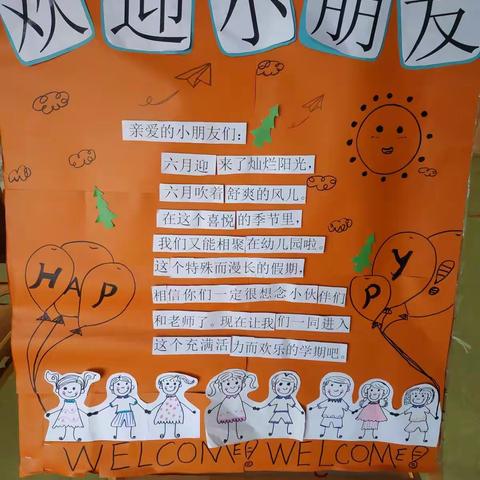 欢迎小朋友
亲爱的小朋友们：
六月迎来了灿烂阳光，
六月吹着舒爽的风儿。
在这个喜悦的季节里，
我们又能相聚在幼儿园啦。
这个特殊而漫长的假期，
相信你们一定很想念小伙伴们
和老师了。现在让我们一同进入
这个充满活力而欢乐的学期吧。
HAP
PY!
WELCOME! WELCOME!